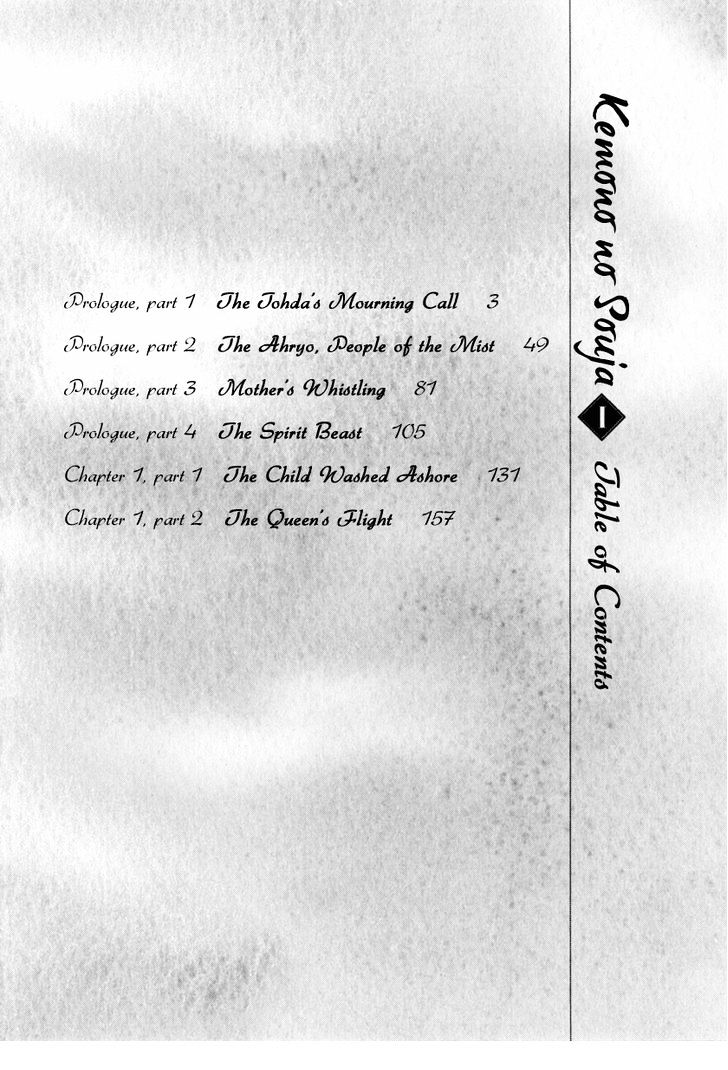 Kemono no Souja I Table of Contents
Prologue, part 1 The Tohda's Mourning Call 3
Prologue, part 2 The Ahryo, People of the Mist 49
Prologue, part 3 Mother's Whistling 81
Prologue, part 4 The Spirit Beast 105
Chapter 1, part 1 The Child Washed Ashore 131
Chapter 1, part 2 The Queen's Flight 157